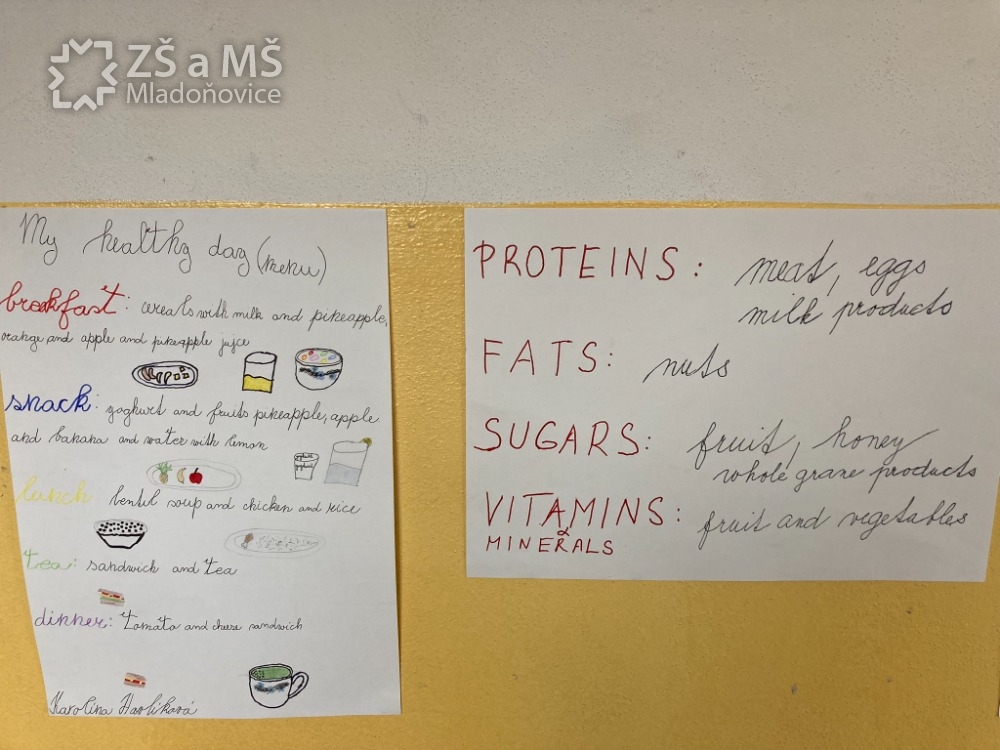 ZŠ a MŠ
Mladoňovice
My healthy day (menu)
breakfast: cereals with milk and pineapple,
orange and apple and pineapple jujce
snack: yoghurt and fruits pineapple, apple
and banana and water with lemon
lunch: lentil soup and chicken and rice
tea: sandwich and tea
dinner: tomato and cheese sandwich
Karolína Havlíková
PROTEINS: meat, eggs
milk products
FATS: nuts
SUGARS: fruit, honey
whole grane products
VITAMINS & MINERALS: fruit and vegetables